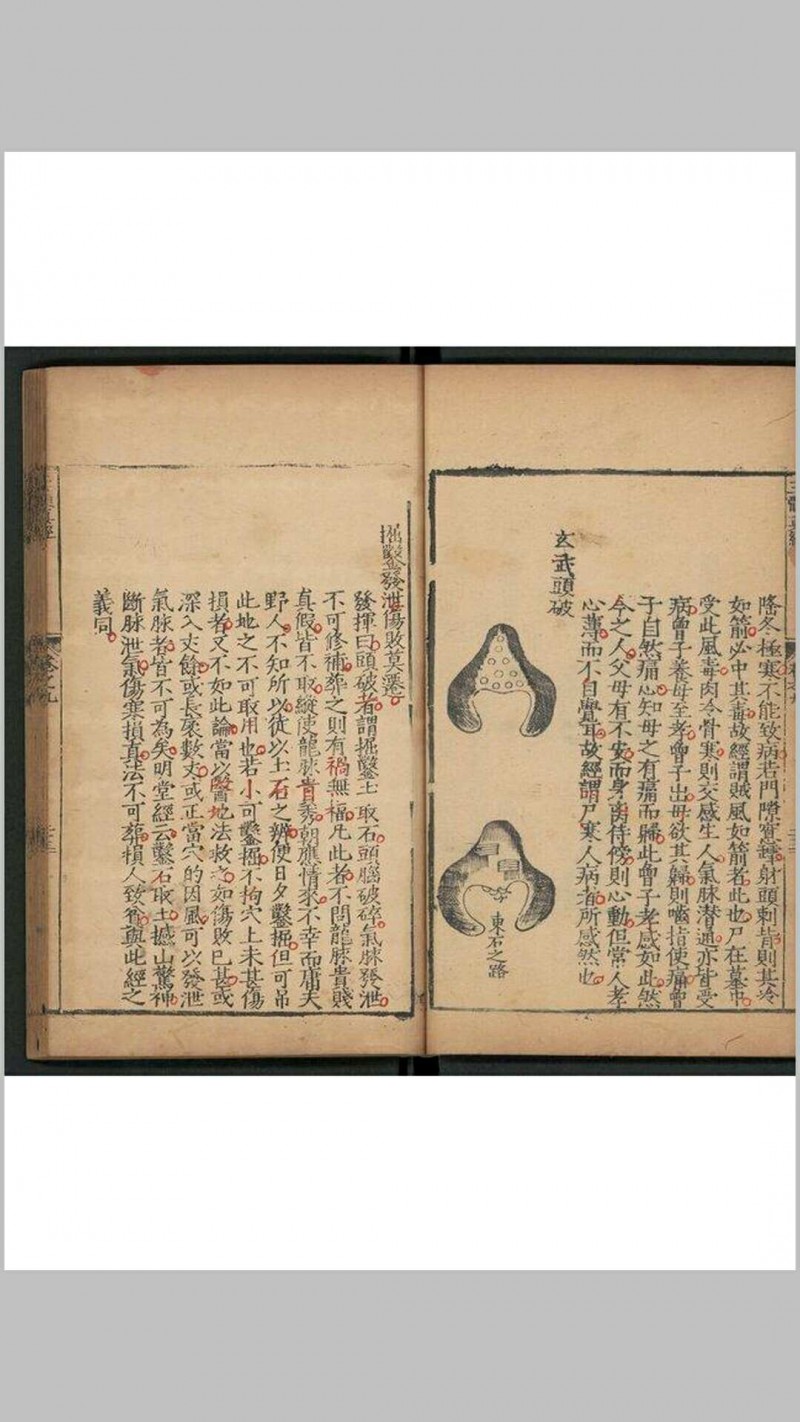 隆冬極寒不能致病若門隙竇罅射頭刺背則其冷
如箭必中其毒故經謂賊風如箭者此也尸在墓中
受此風毒肉冷骨寒則交感生人氣脉潜通亦皆受
病曾子養母至孝曾子出母欲其歸則嚙指使痛曾
子自然痛心知母之有痛而歸此曾子孝感如此然
今之人父母有不安而身离侍傍則心動但常人孝
心薄而不自覺耳故經謂尸寒人病者所感然也
玄武頭破
東石之路
掘鑿發泄傷敗莫遷
發揮曰頭破者謂掘鑿土取石頭腦破碎氣脉發泄
不可修補葬之則有禍無福凡此者不問龍脉貴賤
真假皆不取縱使龍脉貴秀朝應情來不幸而庸夫
野人不知所以徒以土石之辨便日夕鑿掘但可弔
此地之不可取用也若小可鑿掘不拘穴上未甚傷
損者又不如此論當以醫地法救之如傷敗已甚或
深入丈餘或長袤數丈或正當穴的因風可以發泄
氣脉者皆不可為矣明堂經云鑿石取土撼山驚神
斷脉泄氣傷寒損真法不可葬損人致咎與此經之
義同